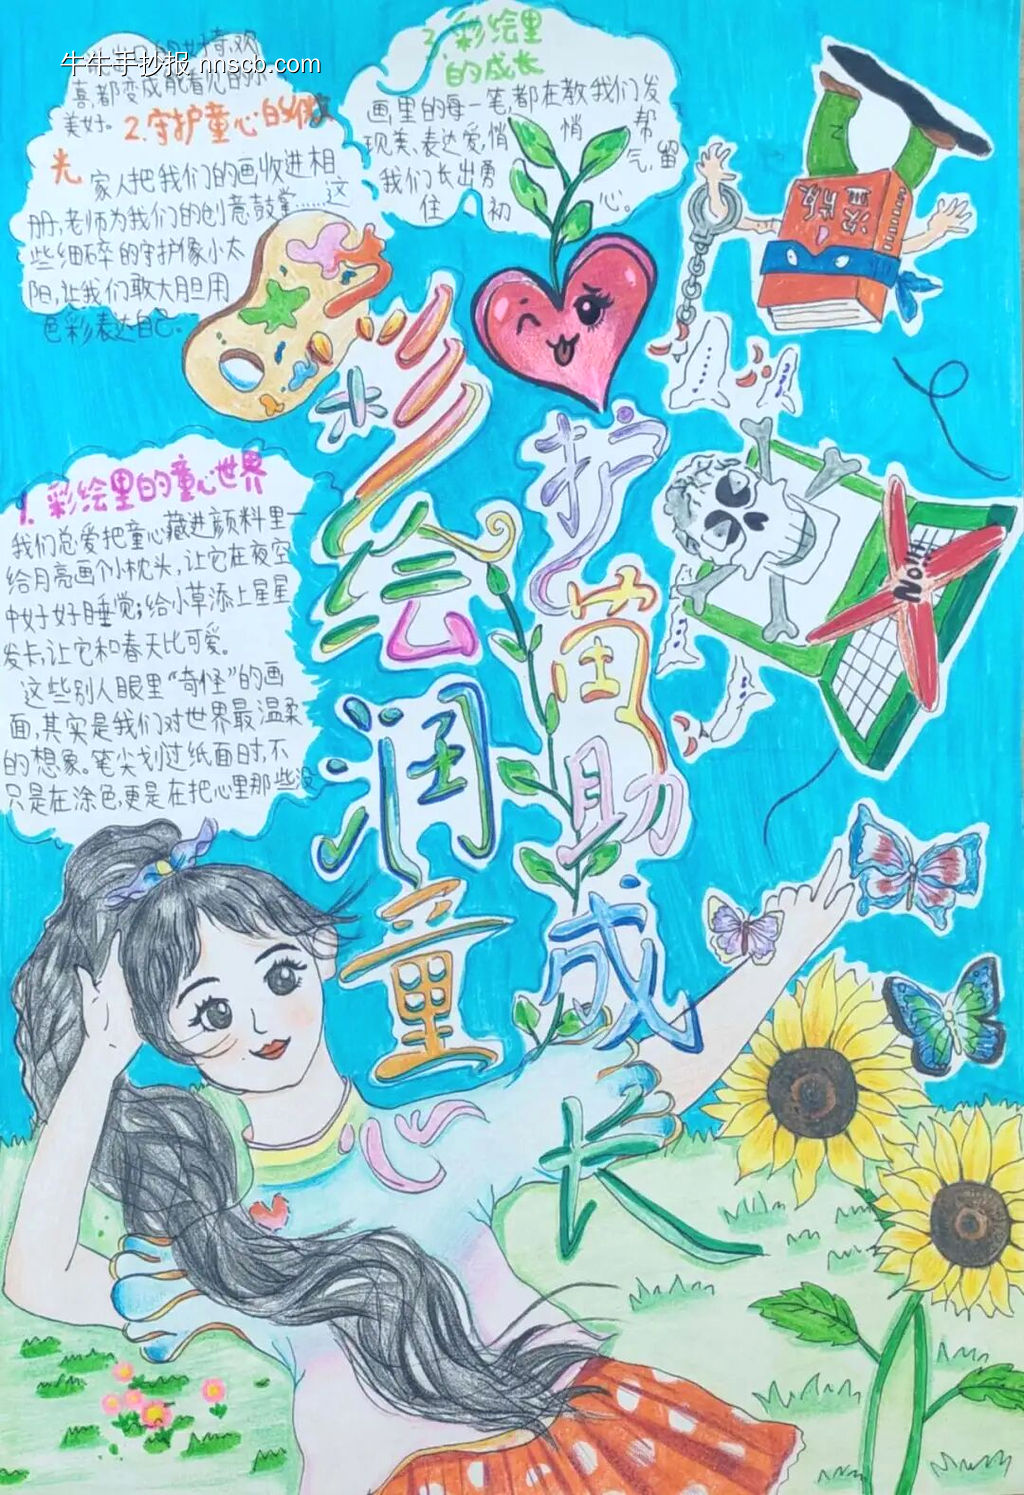 牛牛手抄报 nnscb.com
彩绘润童心
护苗助成长
1. 彩绘里的童心世界
我们总爱把童心藏进颜料里一
给月亮画个小枕头,让它在夜空
中好好睡觉;给小草添上星星
发卡,让它和春天比可爱。
这些别人眼里“奇怪”的画
面,其实是我们对世界最温柔
的想象。笔尖划过纸面时,不
只是在涂色,更是在把心里那些没
奇,欢
喜,都变成能看见的
美好。
2.守护童心的微
光
家人把我们的画收进相
册,老师为我们的创意鼓掌……这
些细碎的守护像小太
阳,让我们敢大胆用
色彩表达自己。
3.彩绘里
的成长
画里的每一笔,都在教我们发
现美、表达爱,悄悄帮
我们长出勇气,留
住初心。
盗版
No!!!